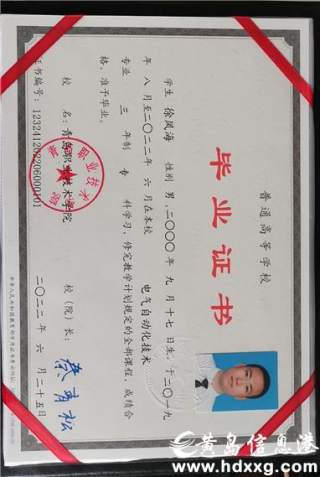 普通高等学校
毕业证书
学生 徐凤海 性别 男,二〇〇〇年 九 月 十七 日生,于二〇一九
年 八 月至二〇二二年 六 月在本校 电气自动化技术
专业 三 年制 专 科学习,修完教学计划规定的全部课程,成绩合
格,准予毕业。
校 名:青岛职业技术学院 校(院)长:
证书编号:123241202206000101 二〇二二年 六 月二十五日
黄岛信息港
www.hdxxg.com